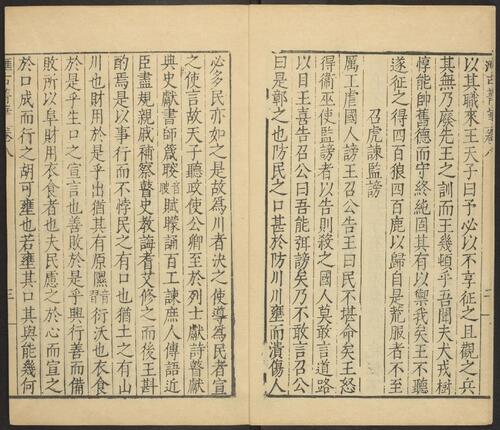 以其職來王天子曰予必以不享征之且觀之兵
其無乃廢先王之訓而王幾頓乎吾聞夫犬戎樹
惇能帥舊德而守終純固其有以禦我矣王不聽
遂征之得四白狼四白鹿以歸自是荒服者不至
召虎諫監謗
厲王虐國人謗王召公告王曰民不堪命矣王怒
得衛巫使監謗者以告則殺之國人莫敢言道路
以目王喜告召公曰吾能弭謗矣乃不敢言召公
曰是鄣之也防民之口甚於防川川壅而潰傷人
必多民亦如之是故為川者決之使導為民者宣
之使言故天子聽政使公卿至於列士獻詩瞽獻
典史獻書師箴瞍賦矇誦百工諫庶人傳語近
臣盡規親戚補察瞽史教誨耆艾修之而後王斟
酌焉是以事行而不悖民之有口也猶土之有山
川也財用於是乎出猶其有原隰衍沃也衣食
於是乎生口之宣言也善敗於是乎興行善而備
敗所以阜財用衣食者也夫民慮之於心而宣之
於口成而行之胡可壅也若壅其口其與能幾何
卷八
三